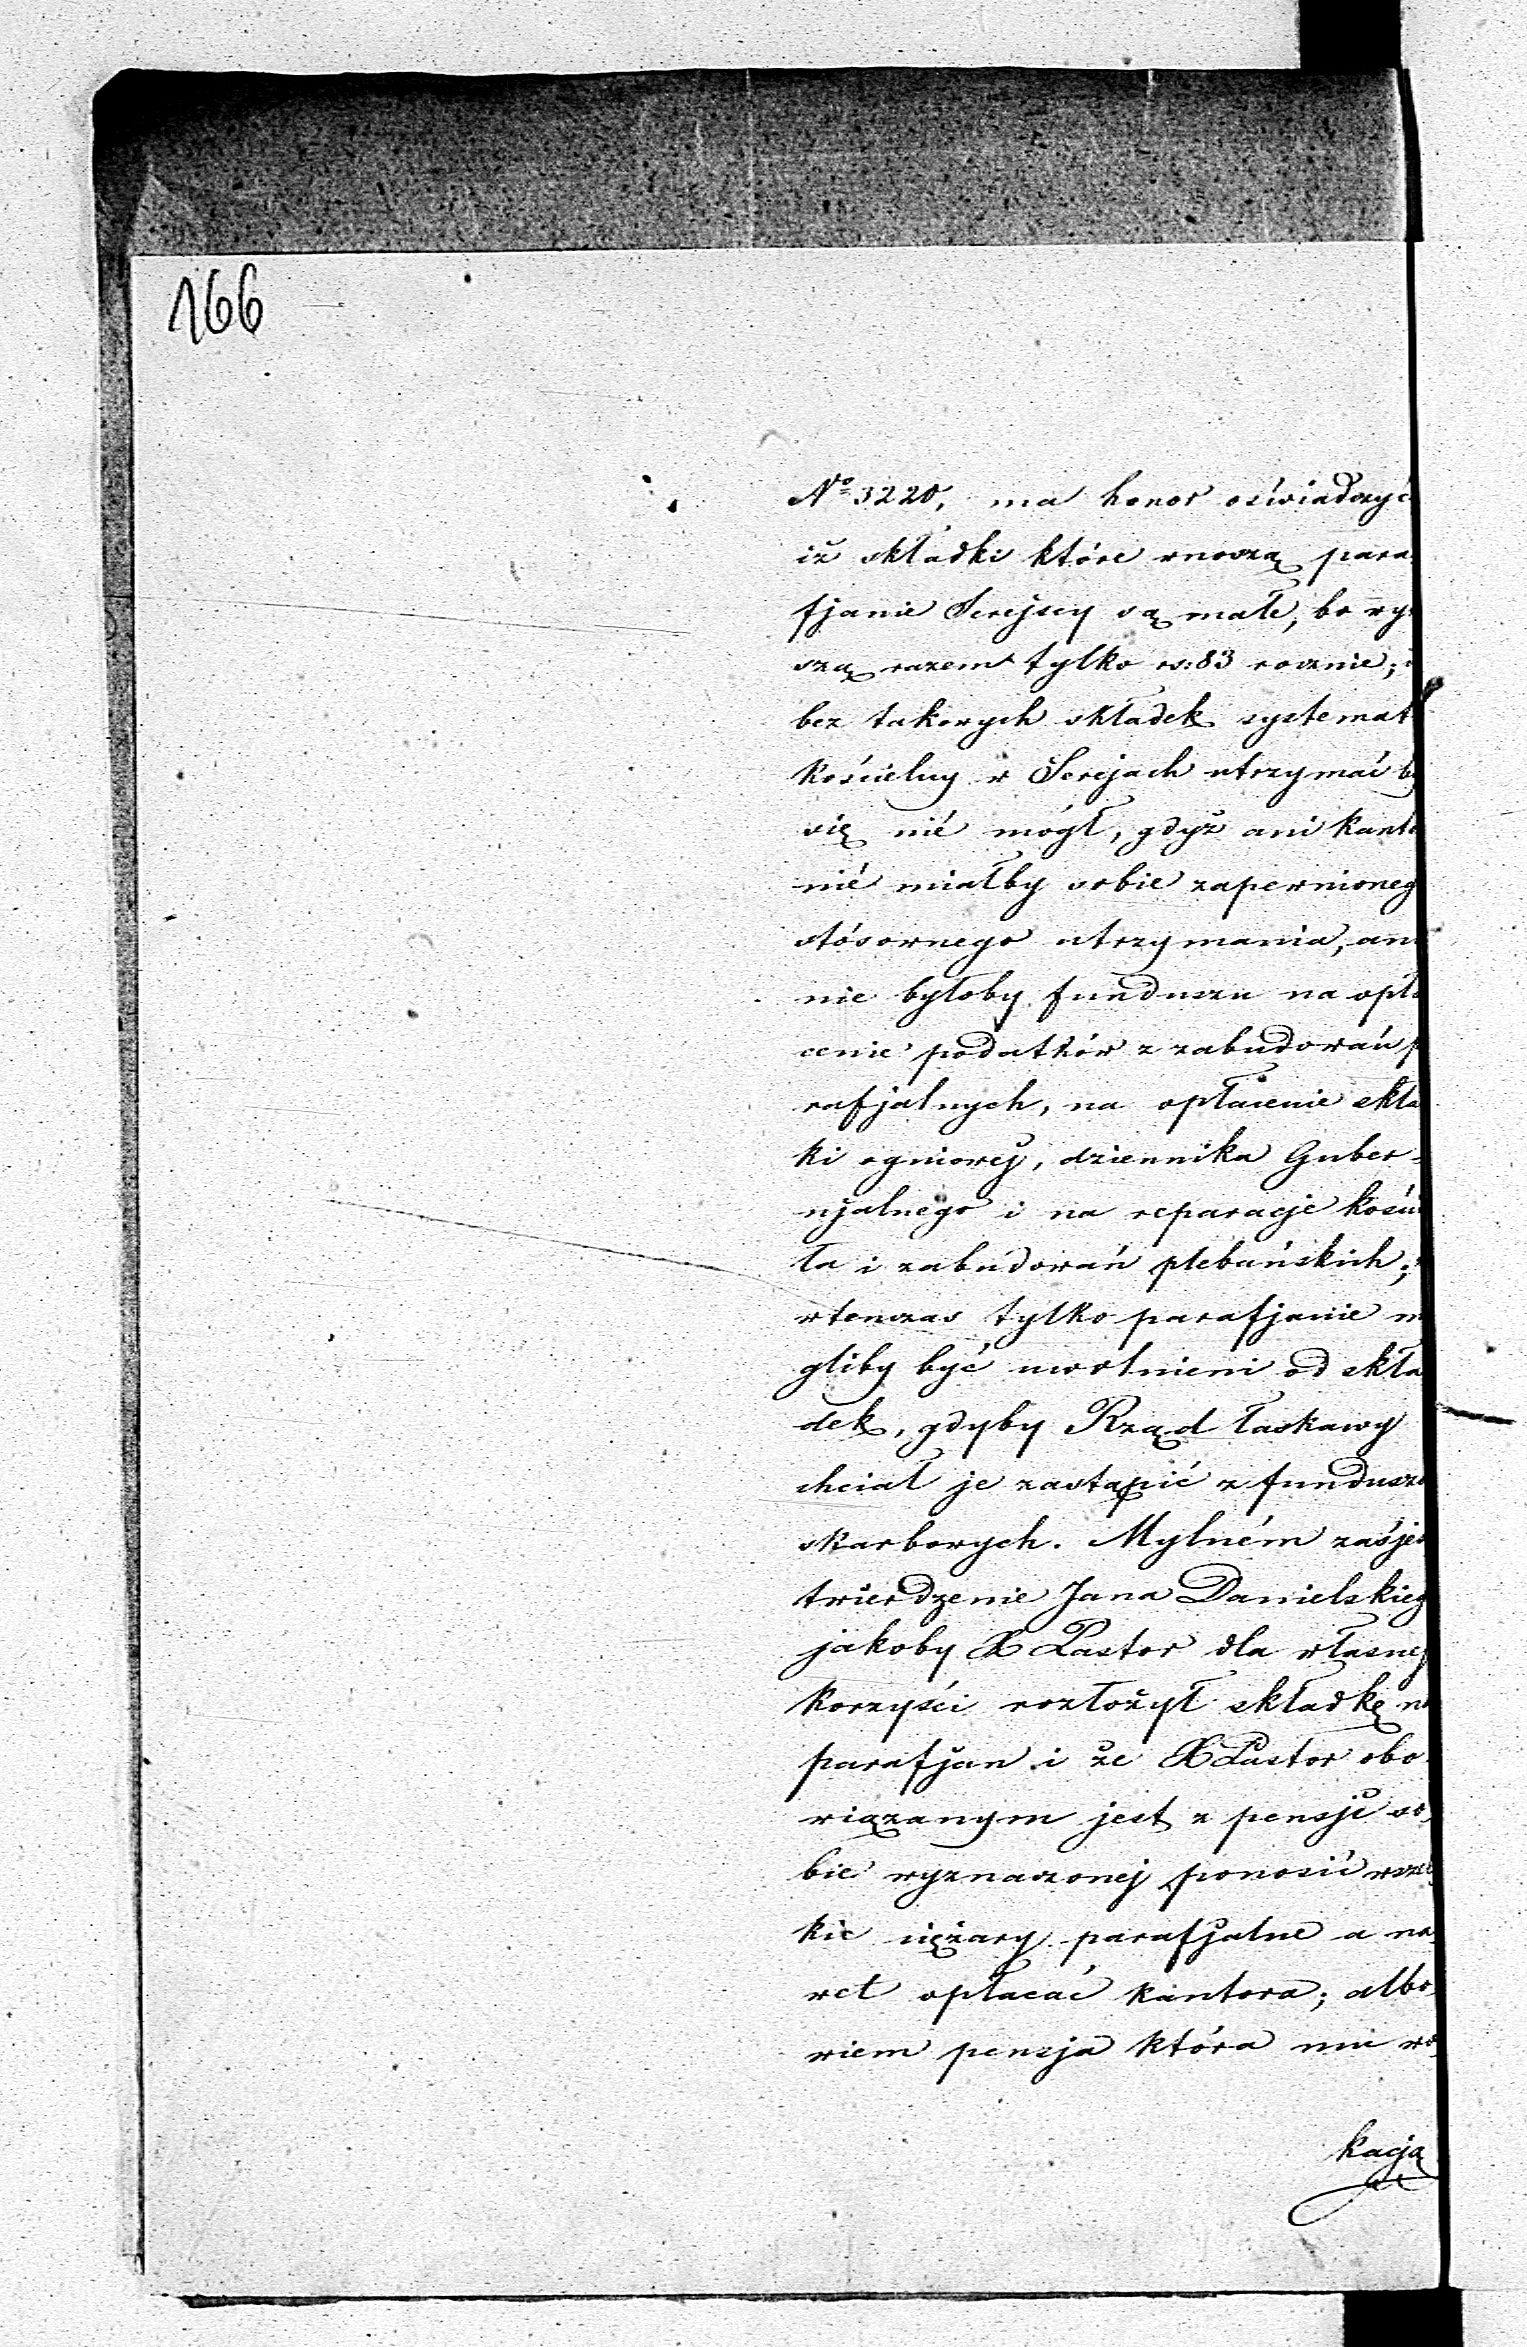 166
No 3220, ma honor oświadczyć
iż składki które wnoszą para-
fjanie Serejscy są małe, bo wy-
szą razem tylko rs: 83 rocznie;
bez takowych składek systemat
kościelny w Serejach utrzymać by
się nié mógł, gdyż ani kanto
nié miałby sobie zapewnioneg
stósownego utrzymania, ani
nie byłoby funduszu na opła
cenie podatków z zabudowań p
rafjalnych, na opłacenie skła
ki ogniowej, dziennika Guber-
njalnego i na reparacje kości
ła i zabudowań plebańskich;
wtenczas tylko parafjanie m
gliby być uwolnieni od skła
dek, gdyby Rząd łaskawy
chciał je zastąpić z fundusz
skarbowych. Mylném zaś jes
twierdzenie Jana Danielskieg
jakoby X Pastor dla własnej
korzyści rozłożył składkę na
parafjan i że X Pastor obo-
wiązanym jest z pensji so-
bie wyznaczonej ponosić wszel
kie ciężary parafjalne a na-
wet opłacać kantora; albo-
wiem pensja która mu wo-
kacją